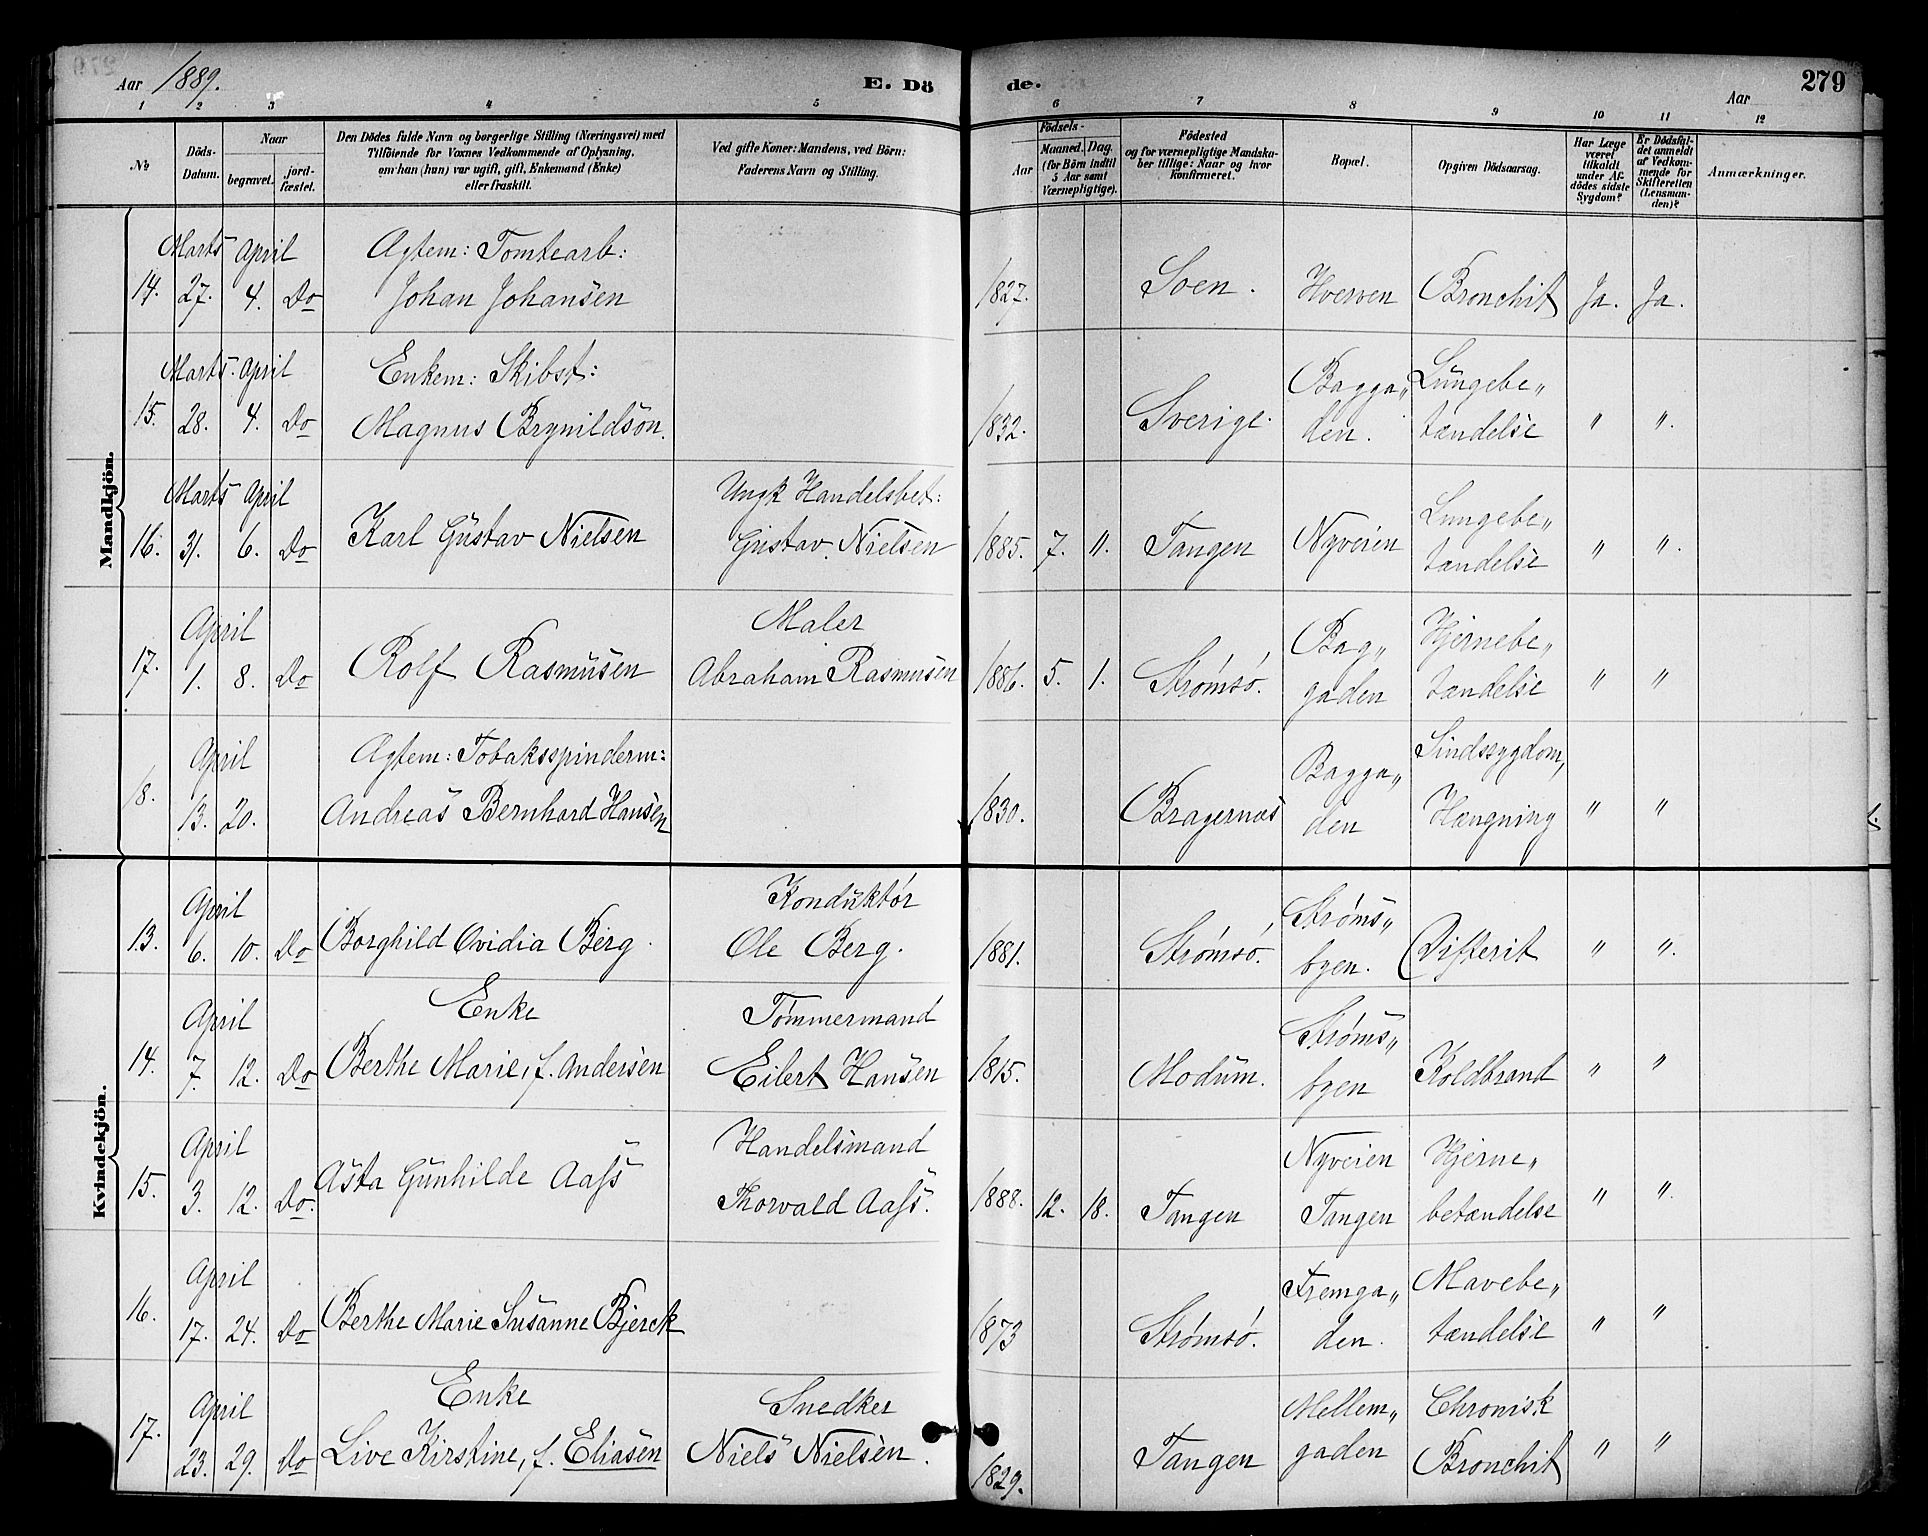 Aar 1889. E. Dö de. Aar 279
1 2 3 4 5 6 7 8 9 10 11 12
No Döds-Datum. Naar begravet. jordfæstet. Den Dödes fulde Navn og borgerlige Stilling (Næringsvei) med Tilföiende for Voxnes Vedkommende af Oplysning, om han (hun) var ugift, gift, Enkemand (Enke) eller fraskilt. Ved gifte Koner: Mandens, ved Börn: Faderens Navn og Stilling. Födsels- Aar Maaned. Dag. (for Börn indtil 5 Aar samt Værnepligtige). Födested og for værnepligtige Mandskaber tillige: Naar og hvor konfirmeret. Bopæl. Opgiven Dödsaarsag. Har Læge været tilkaldt under Afdödes sidste Sygdom? Er Dödsfaldet anmeldt af Vedkommende for Skifteretten (Lensmanden)? Anmærkninger.
Mandkjön.
Marts April Agtem: Tomtearb:
14. 27. 4. Do Johan Johansen 1827. Soen. Hverven Bronchit Ja. Ja.
Marts April Enkem: Skibst: Bagga„ Lungebe„
15. 28. 4. Do Magnus Brynildson. 1832. Sverige. den. tændelse " ".
Marts April Ungk Handelsbet: Lungebe„
16. 31. 6. Do Karl Gustav Nielsen Gustav Nielsen 1885. 7. ". Tangen Nyveien tændelse " ".
April Maler Bag„ Hjernebe„
17. 1. 8. Do Rolf Rasmusen Abraham Rasmusen 1886. 5. 1. Strømsö. gaden tændelse " "
April Agtem: Tobaksspinderm: Bagga„ Sindssygdom,
18. 13. 20. Andreas Bernhard Hansen 1830. Bragernæs den Hængning " "
Kvindekjön.
April Konduktör Strøms„
13. 6. 10. Do Borghild Ovidia Berg. Ole Berg. 1881. Strømsö. byen. Difterit " ".
April Enke Tömmermand Strøms„
14. 7. 12. Do Berthe Marie, f. Andersen Eilert Hansen 1815. Modum. byen Koldbrand " "
April Handelsmand Nyveien Hjerne„
15. 3. 12. Do. Asta Gunhilde Aass Thorvald Aass. 1888. 12. 18. Tangen Tangen betændelse " ".
April Fremga„ Mavebe„
16. 17. 24. Do Berthe Marie Susanne Bjerck 1873 Strømsö. den. tændelse " "
April Enke Snedker Mellem„ Chronisk
17. 23. 29. Do Live Kirstine, f. Eliasen Niels Nielsen. 1829. Tangen gaden Bronchit " "